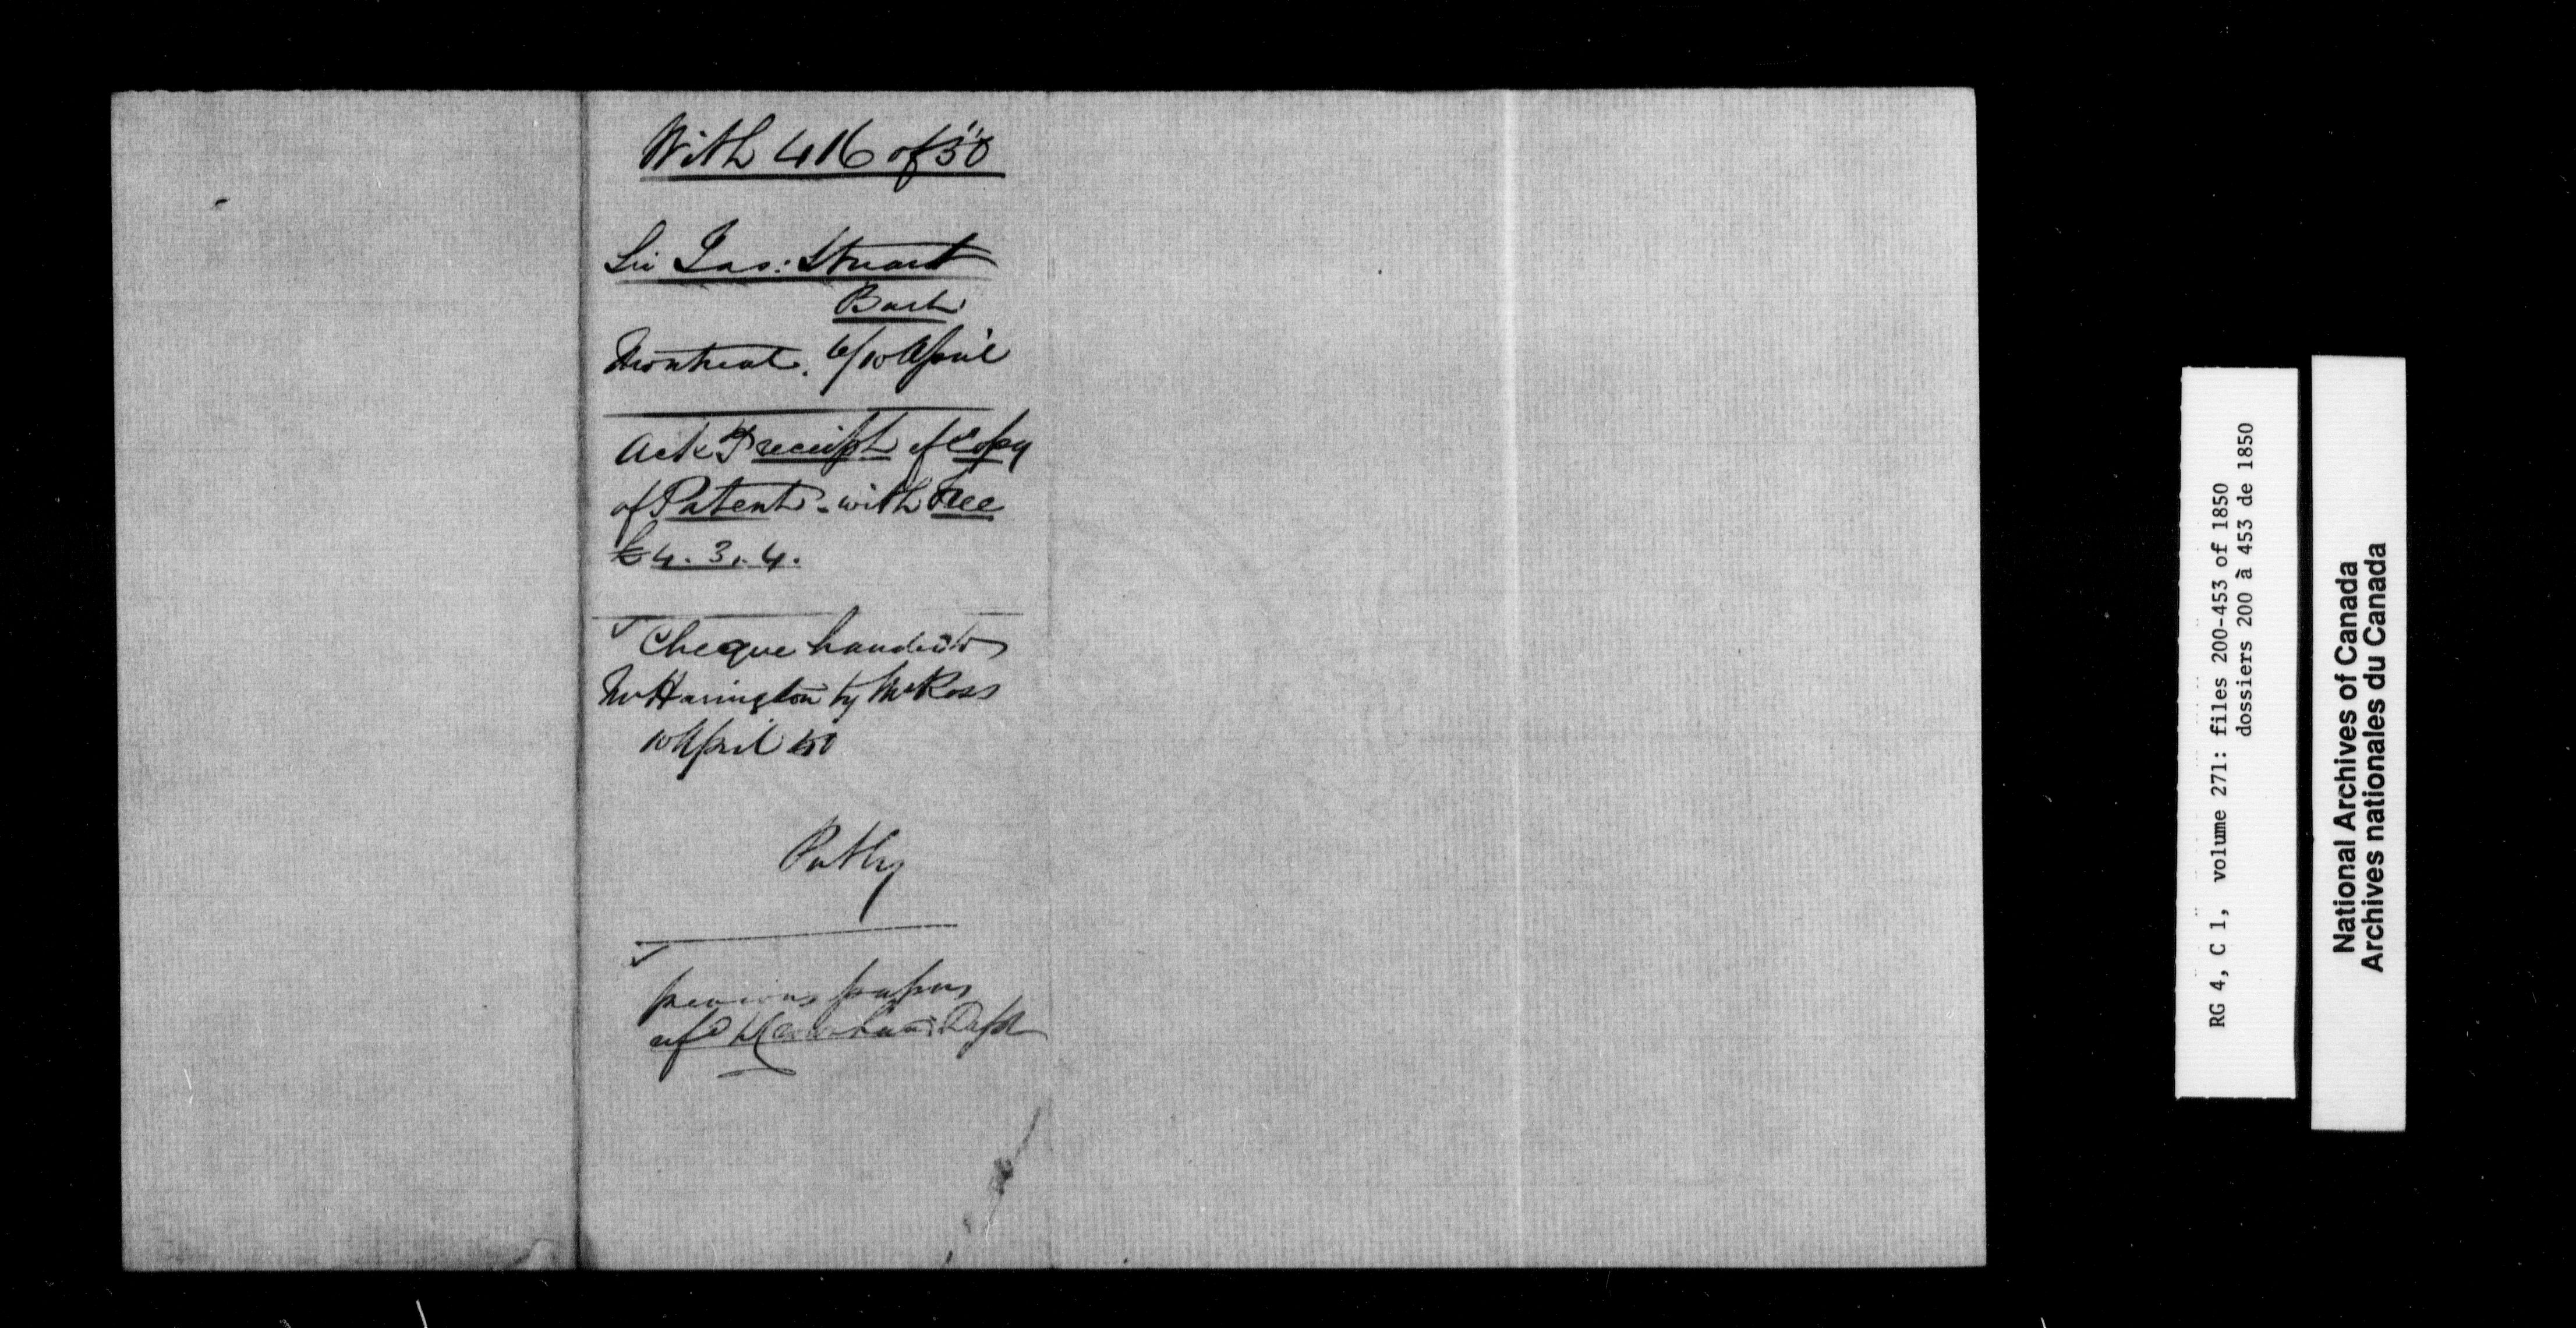 With 416 of '50
Sir Jas: Stuart
Bart
Montreal. 6/10 April
Ackg receipt of Copy
of Patent - with Fee
£4. 3. 4.
Cheque handed to
Mr Harington by Mr Ross
10 April 50
previous papers
Dept
RG 4, C 1, volume 271: files 200-453 of 1850
dossiers 200 à 453 de 1850
National Archives of Canada
Archives nationales du Canada